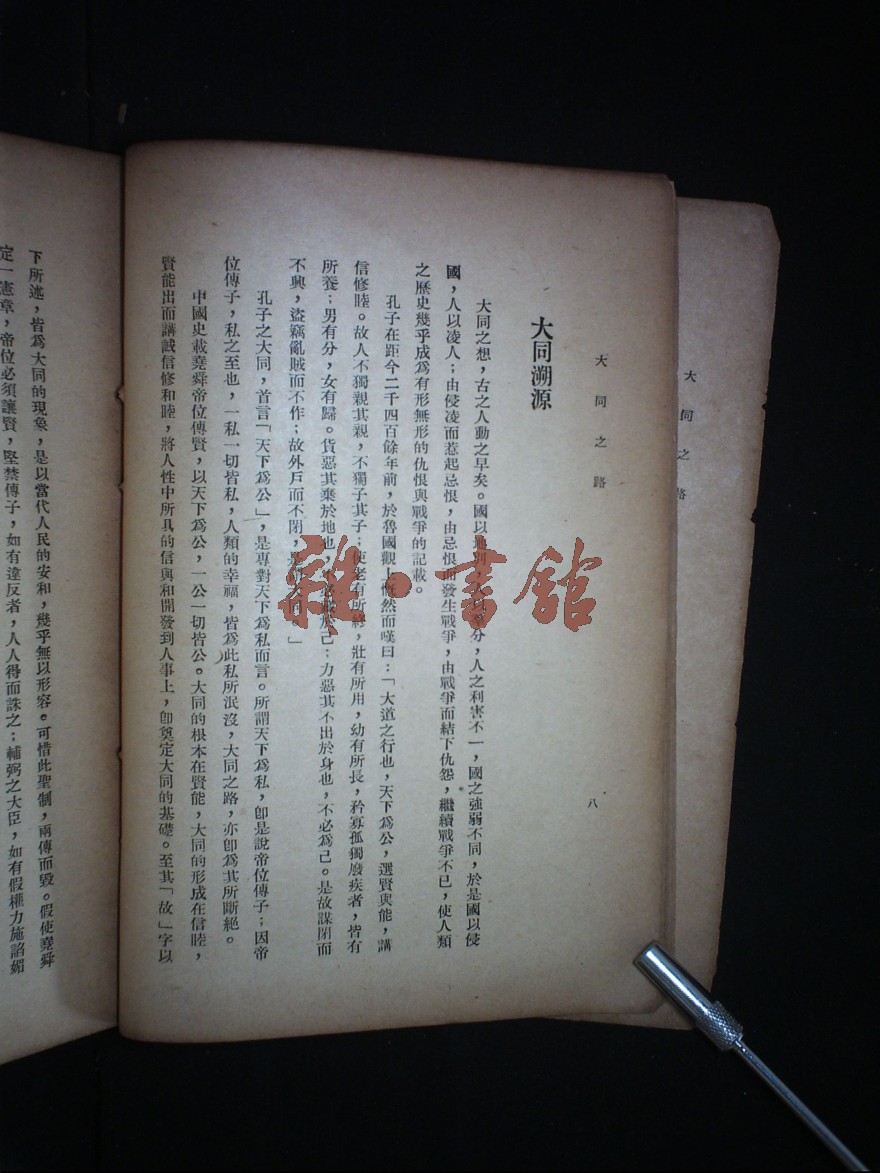 大同之路
大同之路
八
大同溯源
大同之想，古之人動之早矣。國以地別，人以 分，人之利害不一，國之強弱不同，於是國以侵
國，人以凌人；由侵凌而惹起忌恨，由忌恨而發生戰爭，由戰爭而結下仇怨，繼續戰爭不已，使人類
之歷史幾乎成爲有形無形的仇恨與戰爭的記載。
孔子在距今二千四百餘年前，於魯國觀上慨然而嘆曰：「大道之行也，天下爲公，選賢與能，講
信修睦。故人不獨親其親，不獨子其子；使老有所終，壯有所用，幼有所長，矜寡孤獨廢疾者，皆有
所養；男有分，女有歸。貨惡其棄於地也，不必藏於己；力惡其不出於身也，不必爲己。是故謀閉而
不興，盜竊亂賊而不作；故外戶而不閉，是謂大同。」
孔子之大同，首言「天下爲公」，是專對天下爲私而言。所謂天下爲私，卽是說帝位傳子；因帝
位傳子，私之至也，一私一切皆私，人類的幸福，皆爲此私所泯沒，大同之路，亦卽爲其所斷絕。
中國史載堯舜帝位傳賢，以天下爲公，一公一切皆公。大同的根本在賢能，大同的形成在信睦，
賢能出而講誠信修和睦，將人性中所具的信與和開發到人事上，卽奠定大同的基礎。至其「故」字以
下所述，皆爲大同的現象，是以當代人民的安和，幾乎無以形容。可惜此聖制，兩傳而毀。假使堯舜
定一憲章，帝位必須讓賢，堅禁傳子，如有違反者，人人得而誅之；輔弼之大臣，如有假權力施諂媚
雜·書館